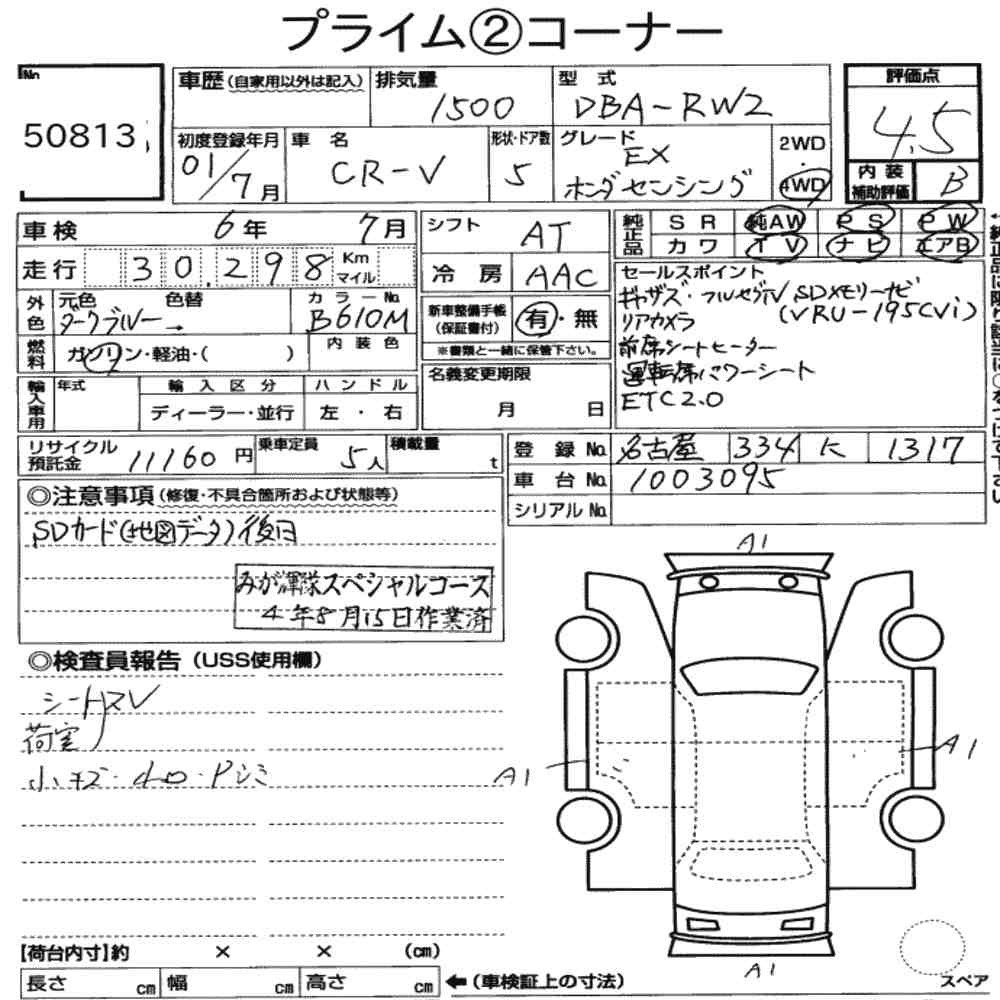 プライム②コーナー
No
50813
車歴(自家用以外は記入)
排気量 1500
型式 DBA-RW2
評価点 4.5
初度登録年月 01/7月
車名 CR-V
形状・ドア数 5
グレード EX
ホンダセンシング
2WD・4WD
内装補助評価 B
車検 6年 7月
走行 30,298 Km マイル
外色 元色 ダークブルー 色替 →
カラーNo. B610M
燃料 ガソリン・軽油・( )
内装色
輸入車用 年式 輸入区分 ディーラー・並行 ハンドル 左・右
シフト AT
冷房 AAC
新車整備手帳(保証書付) 有・無
※書類と一緒に保管下さい。
名義変更期限 月 日
純正品 SR 純AW PS PW
カワ TV ナビ エアB
セールスポイント
ギャザズ・フルセグTV SDメモリーナビ
リアカメラ (VRU-195CVi)
前席シートヒーター
運転席パワーシート
ETC2.0
リサイクル預託金 11160円
乗車定員 5人
積載量 t
登録No. 名古屋 334 に 1317
車台No. 1003095
シリアルNo.
◎注意事項(修復・不具合箇所および状態等)
SDカード(地図データ)後日
みが輝隊スペシャルコース
4年8月15日作業済
◎検査員報告(USS使用欄)
シートスレ
荷室
小キズ・
A1
A1
A1
A1
【荷台内寸】約 × × (cm)
長さ cm 幅 cm 高さ cm ←(車検証上の寸法)
スペア